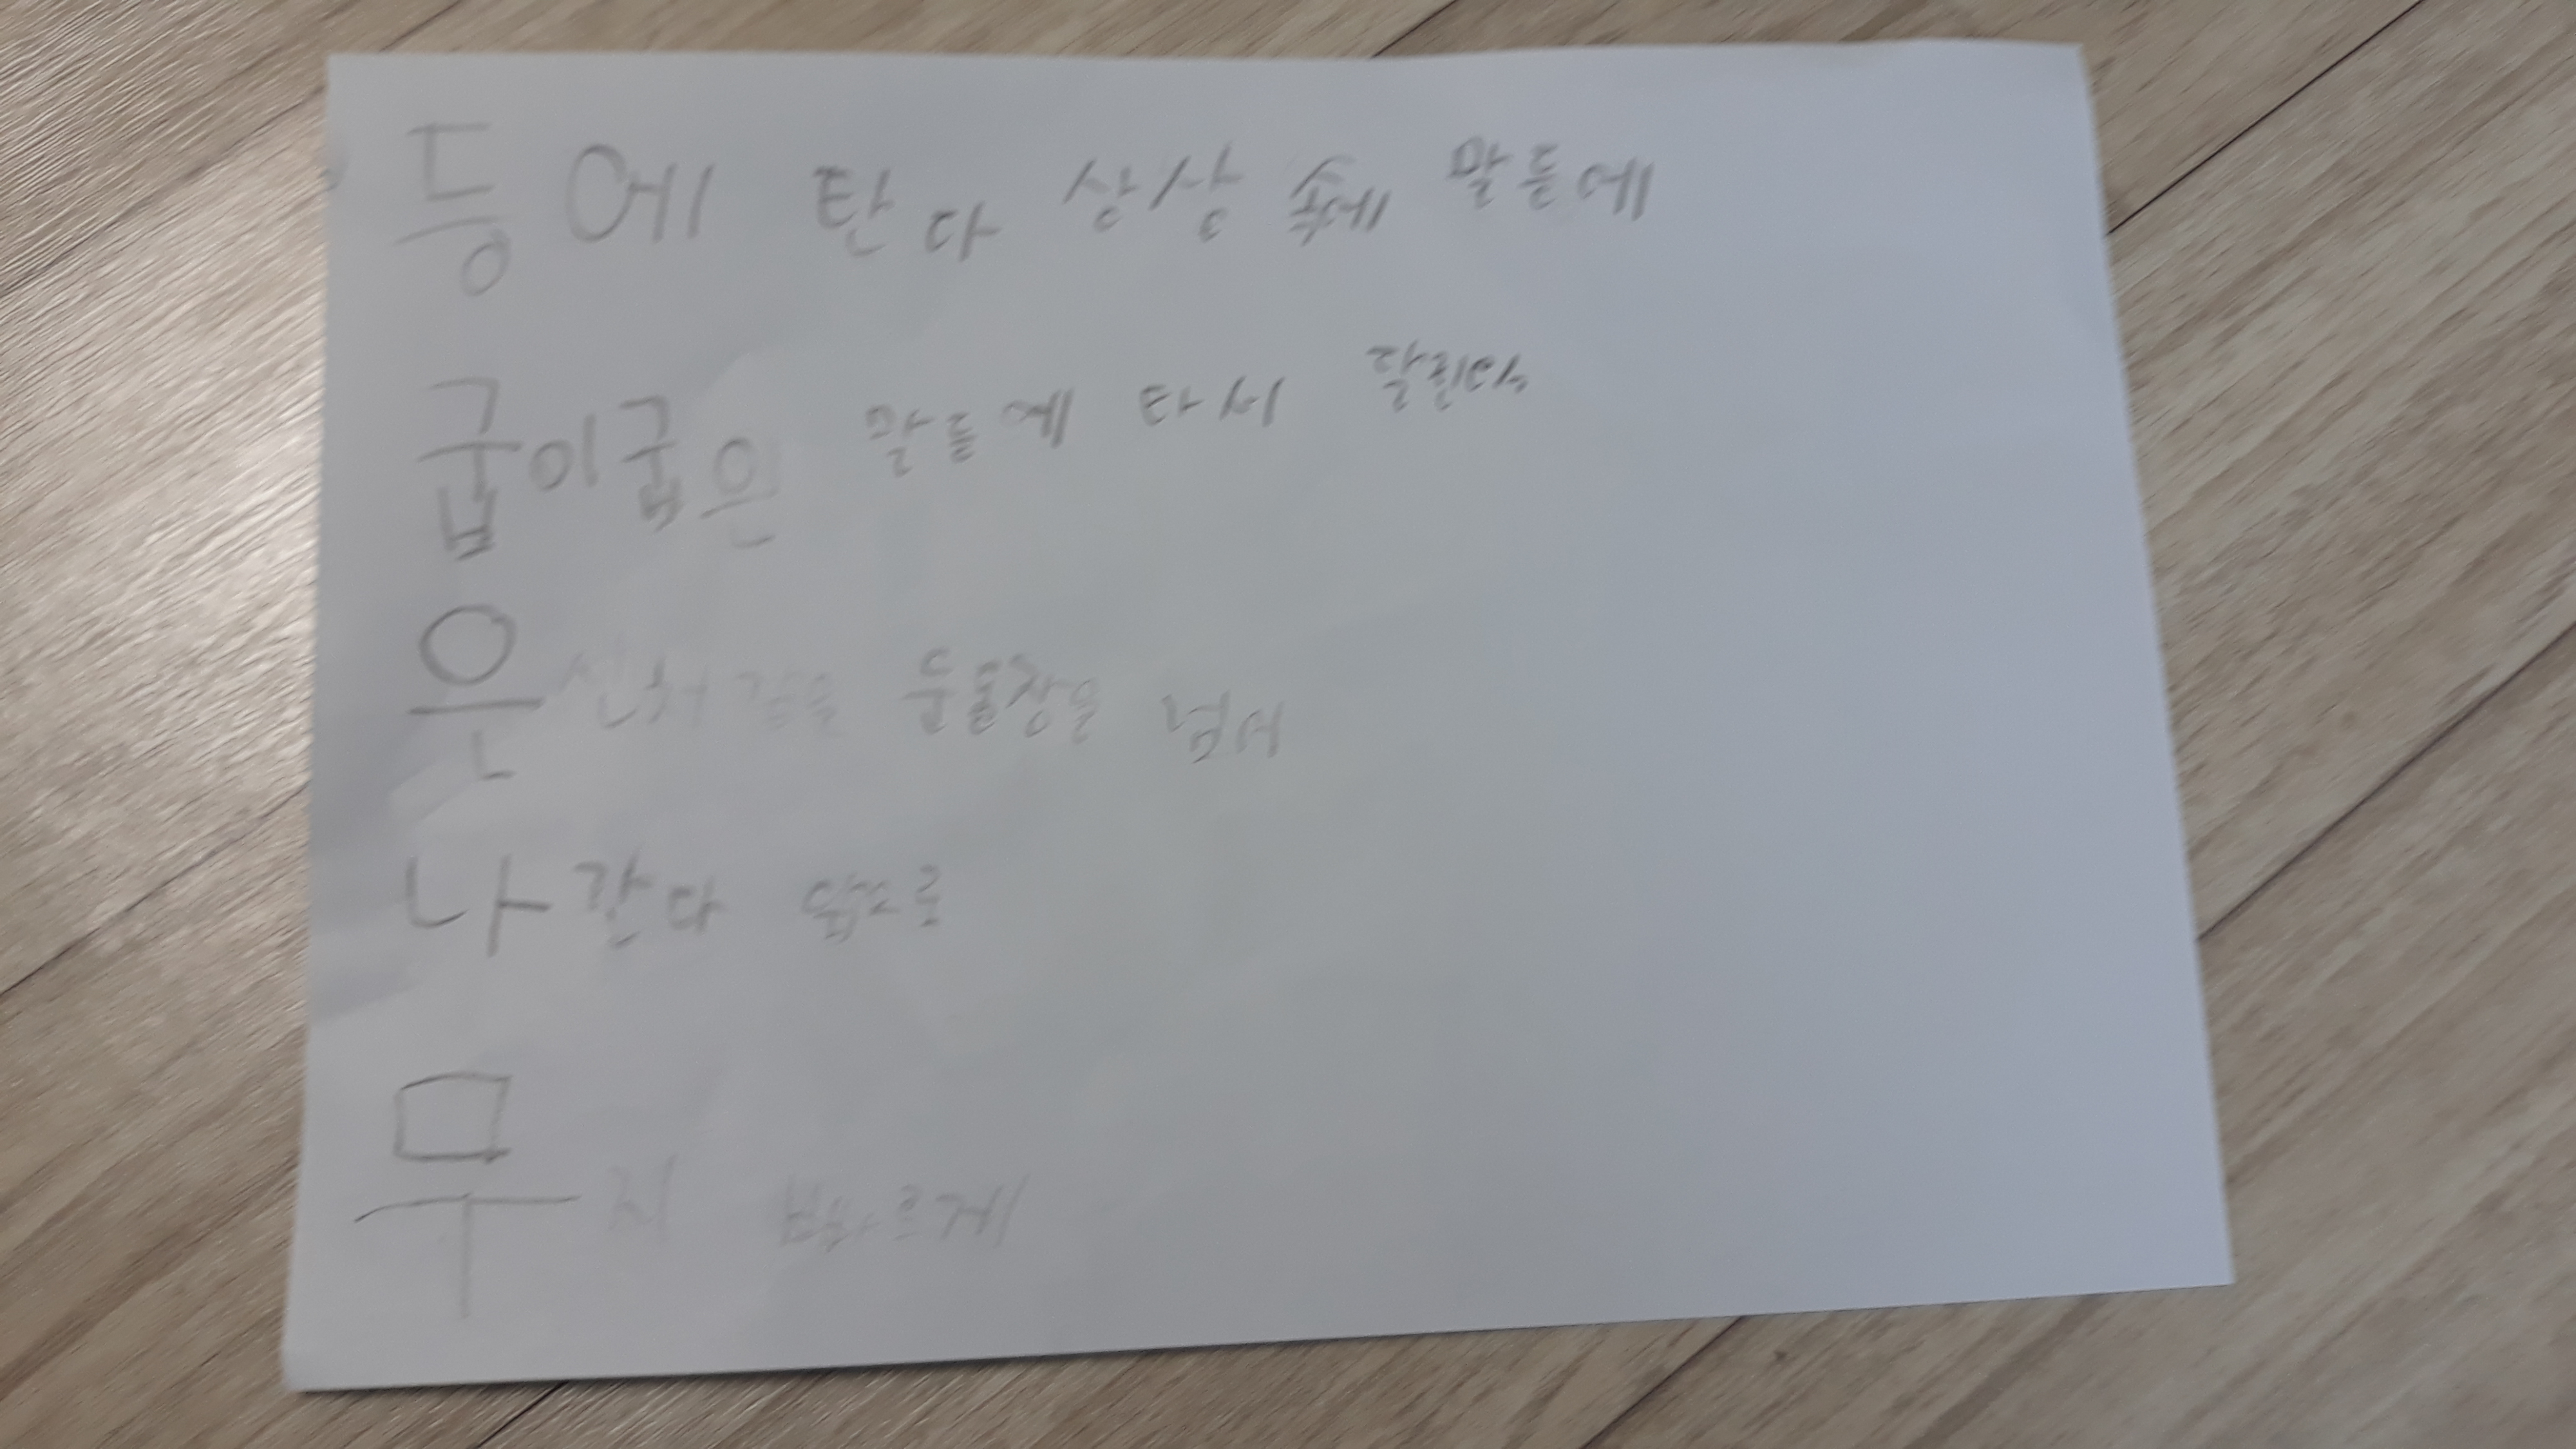 등에 탄다 상상 속에 말들에
굽이굽은 말들에 타서 달린다
은 눈물장을 넘어
나간다 앞으로
무지 빠르게